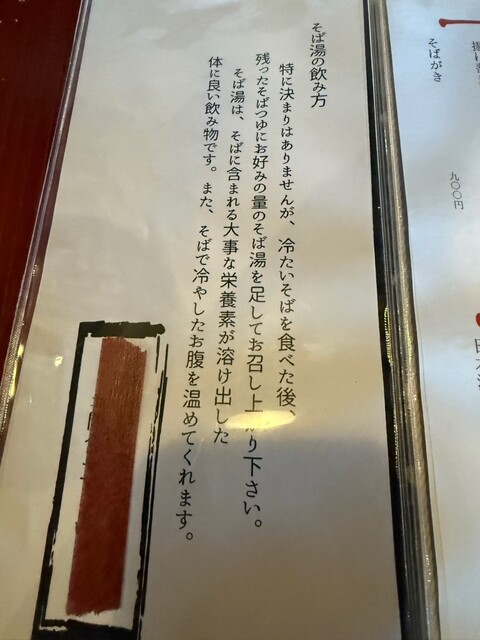 そば湯の飲み方
特に決まりはありませんが、冷たいそばを食べた後、
残ったそばつゆにお好みの量のそば湯を足してお召し上がり下さい。
そば湯は、そばに含まれる大事な栄養素が溶け出した
体に良い飲み物です。また、そばで冷やしたお腹を温めてくれます。
そばがき
九〇〇円